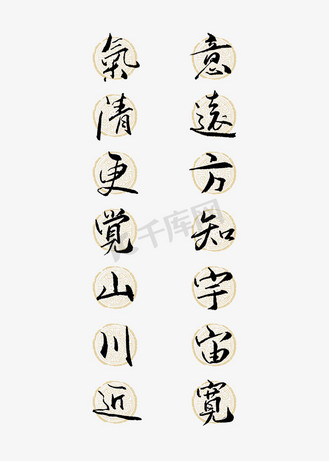 氣清更覺山川近
意遠方知宇宙寬
千库网